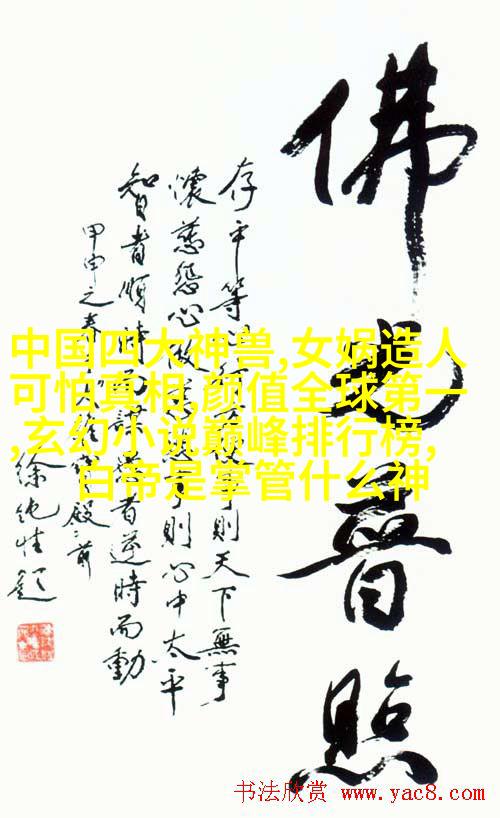 佛光普照
存平等心行事則天下無事
懷慈悲心做事則心中太平
智者順時而謀愚者逆時而動
甲申之春殿前
中国四大神兽,女娲造人
可怕真相,颜值全球第一
,玄幻小说巅峰排行榜,
白帝是掌管什么神
书法欣赏 www.yac8.com